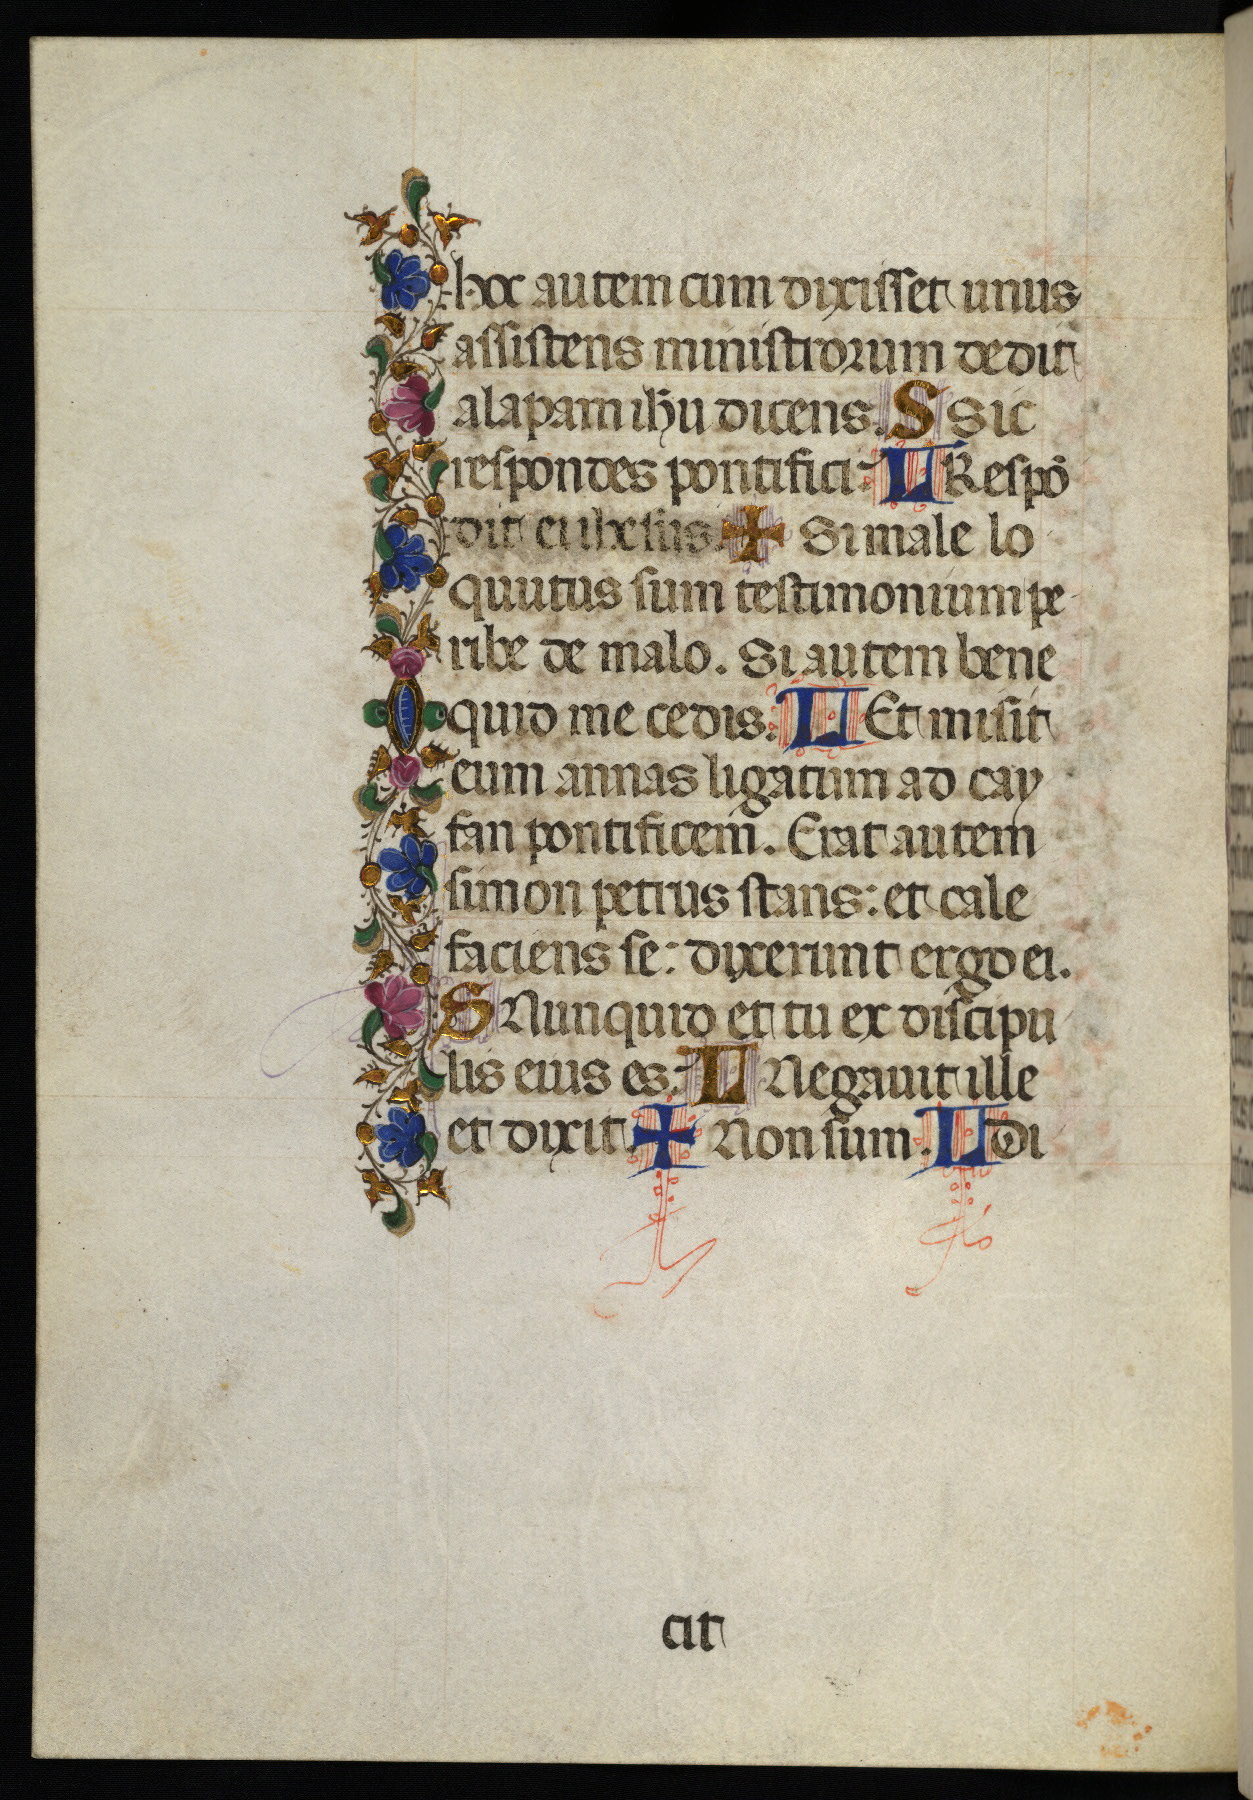 hoc autem cum dixisset unus
assistens ministrorum dedit
alapam ihu dicens. S Sic
respondes pontifici: L Respō
dit ei ihesus. + Si male lo
quutus sum testimonium pe
ribe de malo. Si autem bene
quid me cedis. L Et misit
eum annas ligatum ad cay
fan pontificem. Erat autem
simon petrus stans: et cale
faciens se: dixerunt ergo ei.
S Nunquid et tu ex discipu
lis eius es. L Negavit ille
et dixit. + Non sum. L di
cit